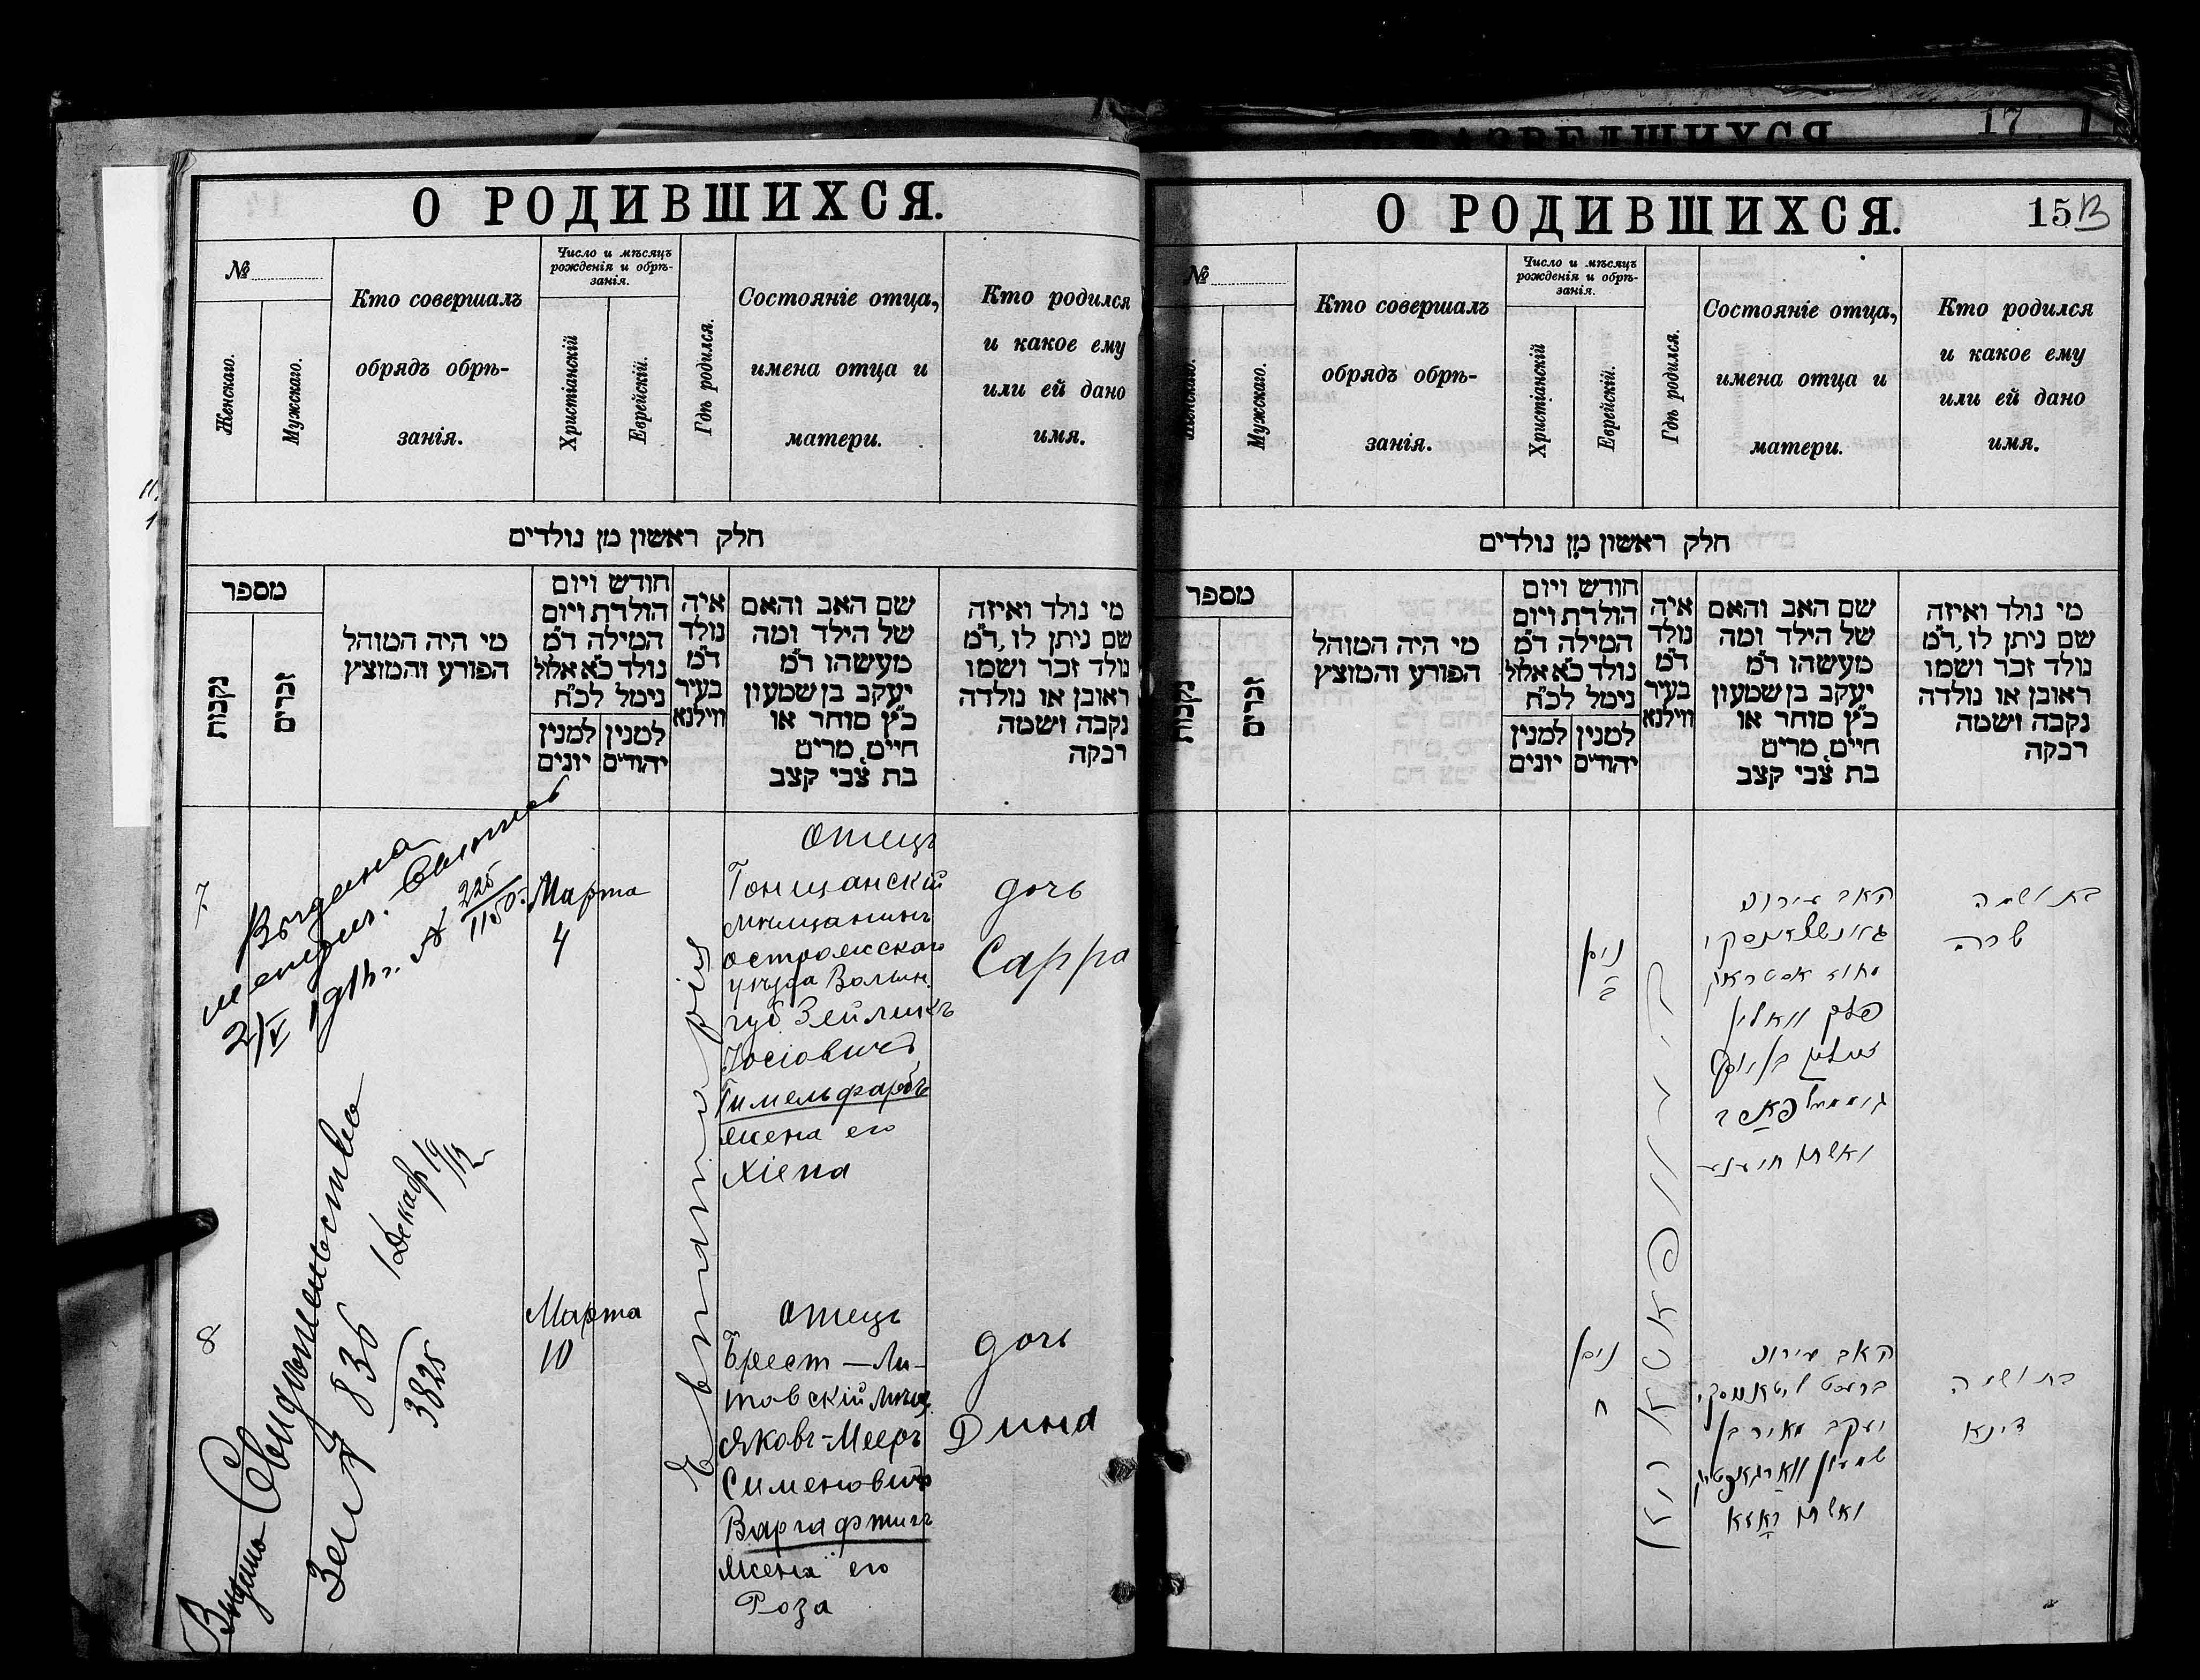 17
О РОДИВШИХСЯ.
№
Женскаго.
Мужскаго.
Кто совершалъ
обрядъ обрѣ-
занія.
Число и мѣсяцъ
рожденія и обрѣ-
занія.
Христіанскій
Еврейскій.
Гдѣ родился.
Состояніе отца,
имена отца и
матери.
Кто родился
и какое ему
или ей дано
имя.
חלק ראשון מן נולדים
מספר
נקבות
זכרים
מי היה המוהל
הפורע והמוצץ
חודש ויום
הולדת ויום
המילה ד״מ
נולד כ״א אלול
נימל לכ״ח
למנין
יונים
למנין
יהודים
איה
נולד
ד״מ
בעיר
ווילנא
שם האב והאם
של הילד ומה
מעשהו ד״מ
יעקב בן שמעון
כ״ץ סוחר או
חיים, מרים
בת צבי קצב
מי נולד ואיזה
שם ניתן לו, ד״מ
נולד זכר ושמו
ראובן או נולדה
נקבה ושמה
רבקה
7.
Выдана
метрич.
2/V 191 г. № 225/1150.
Марта
4
Отецъ
Гощанскій
мѣщанинъ
острожскаго
уѣзда Волын.
губ. Зейликъ
Іосіовичъ
Гимельфарбъ
жена его
Хіена
дочь
Сарра
8
Выдано Свидѣтельство
За № 836
3825
Декаб 19/12
Марта
10
Отецъ
Брест-Ли-
товскій мѣщ.
Яковъ-Мееръ
Сименовичъ
Варгафтигъ
жена его
Роза
дочь
Дина
О РОДИВШИХСЯ.
15 В
№
Женскаго.
Мужскаго.
Кто совершалъ
обрядъ обрѣ-
занія.
Число и мѣсяцъ
рожденія и обрѣ-
занія.
Христіанскій
Еврейскій.
Гдѣ родился.
Состояніе отца,
имена отца и
матери.
Кто родился
и какое ему
или ей дано
имя.
חלק ראשון מן נולדים
מספר
נקבות
זכרים
מי היה המוהל
הפורע והמוצץ
חודש ויום
הולדת ויום
המילה ד״מ
נולד כ״א אלול
נימל לכ״ח
למנין
יונים
למנין
יהודים
איה
נולד
ד״מ
בעיר
ווילנא
שם האב והאם
של הילד ומה
מעשהו ד״מ
יעקב בן שמעון
כ״ץ סוחר או
חיים, מרים
בת צבי קצב
מי נולד ואיזה
שם ניתן לו, ד״מ
נולד זכר ושמו
ראובן או נולדה
נקבה ושמה
רבקה
ניסן
ב
האב עירוני
מחוז
פלך וואלין
בן יוסף
גימעלפארב
ואשתו חיענע
בת ושמה
שרה
ניסן
ח
האב עירוני
ברעסט ליטאווסקי
יעקב מאיר בן
שמעון ווארגאפטיג
ואשתו ראזא
בת ושמה
דינא